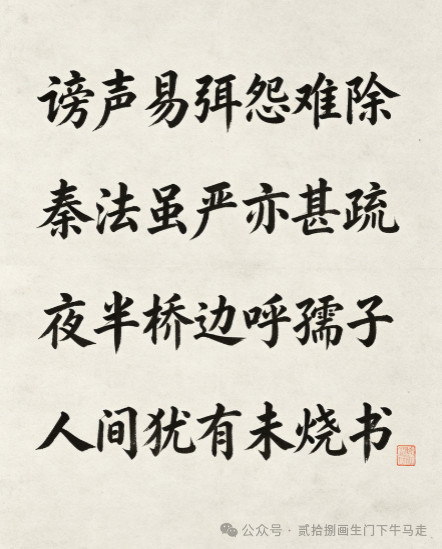 谤声易弭怨难除
秦法虽严亦甚疏
夜半桥边呼孺子
人间犹有未烧书
公众号 · 贰拾捌画生门下牛马走